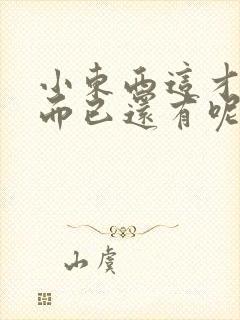 小東西這才
而已還有呢
山虞